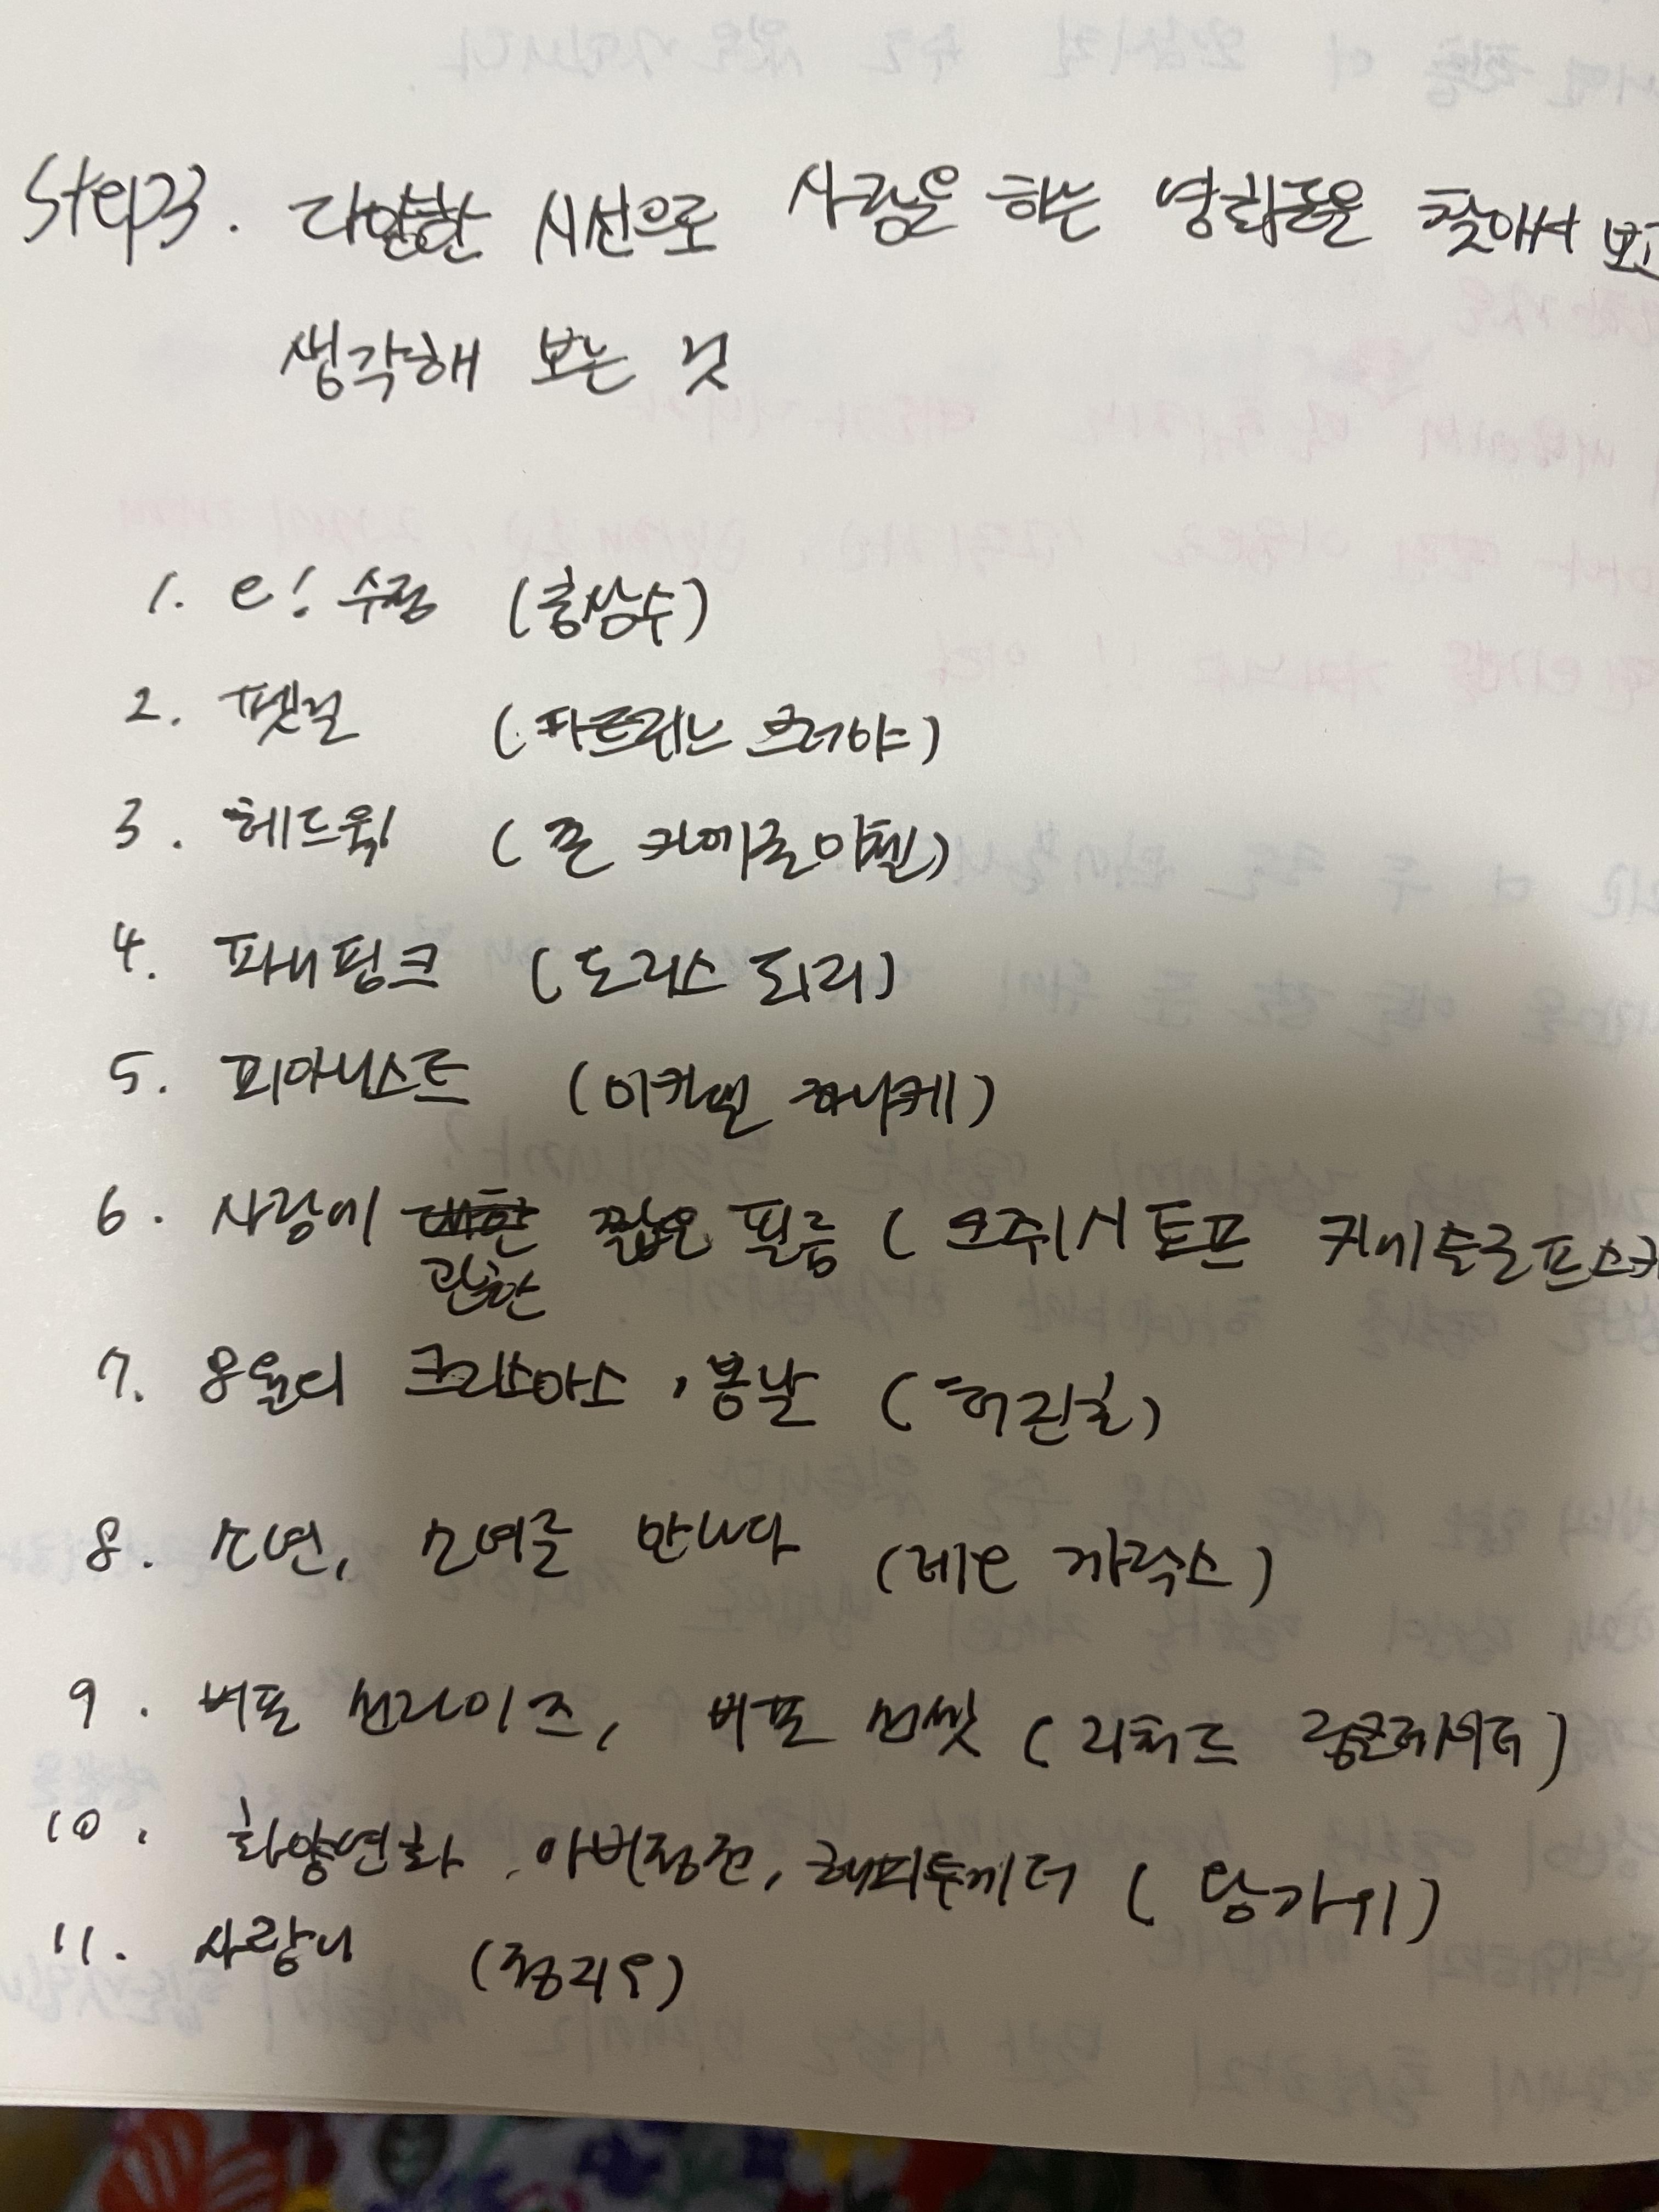 Step3. 다양한 시선으로 사랑을 하는 영화들을 찾아서 보고
생각해 보는 것
1. 오! 수정 (홍상수)
2. 팻걸 (카트린느 브레야)
3. 헤드윅 (존 카메론 미첼)
4. 파니핑크 (도리스 되리)
5. 피아니스트 (미카엘 하네케)
6. 사랑에 대한 짧은 필름 (크쥐시토프 키에슬로프스키
관한
7. 8월의 크리스마스, 봄날 (허진호)
8. 소년, 소녀를 만나다 (레오 까락스)
9. 비포 선라이즈, 비포 선셋 (리차드 링클레이터)
10. 화양연화, 아비정전, 해피투게더 (왕가위)
11. 사랑니 (정지우)